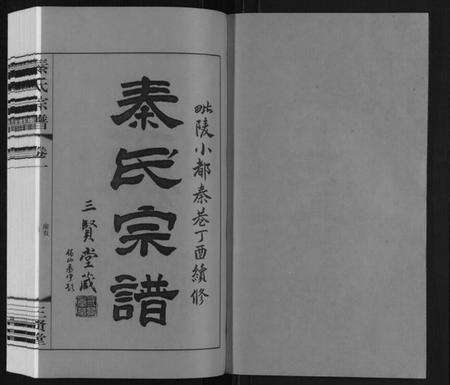 毗陵小都秦巷丁酉續修
秦氏宗譜
三賢堂藏
秦氏宗譜 卷一
三賢堂